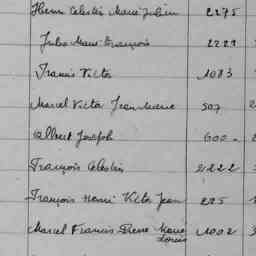 Henri Célestin Marie Julien 2275
Jules Marie François 2229
Francis Victor 1083
Marcel Victor Jean Marie 507
Albert Joseph 600
François Célestin 2222
François Henri Victor Jean 225
Marcel Francis Pierre Marie 1002
Louis